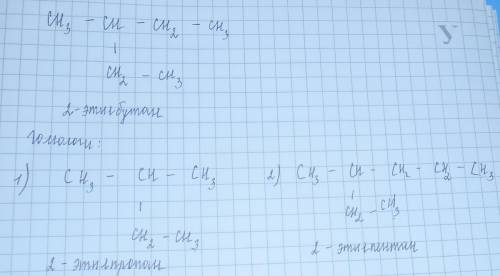 CH₃ - CH - CH₂ - CH₃
CH₂ - CH₃
2-этилбутан
Гомологи:
1) CH₃ - CH - CH₃
CH₂ - CH₃
2 - этилпропан
2) CH₃ - CH - CH₂ - CH₂ - CH₃
CH₂ - CH₃
2 - этилпентан
У